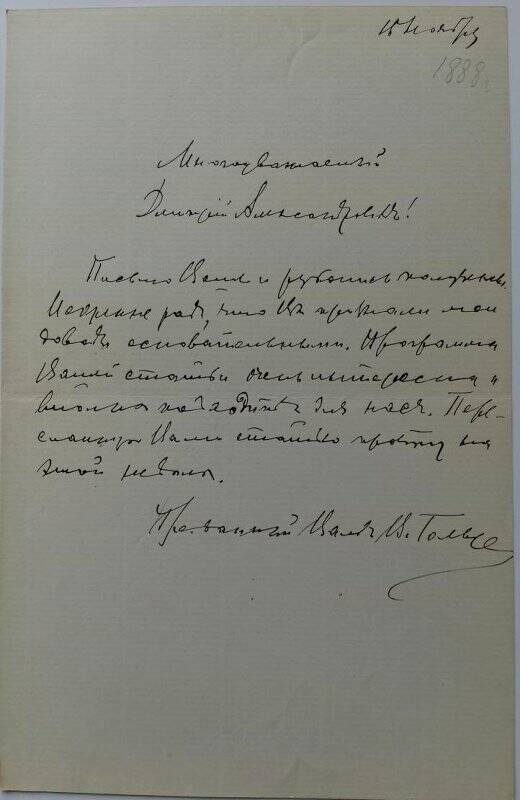 15 ноября
1888 г.
Многоуважаемый
Дмитрий Александровичъ!
Письмо Ваше и рукопись получилъ.
Искренне радъ, что Вы признали мои
доводы основательными. Программа
Вашей статьи очень интересна и
вполнѣ подходитъ для насъ. Пере-
статью прочту на
этой недѣлѣ.
Преданный Вамъ В. Гольцевъ